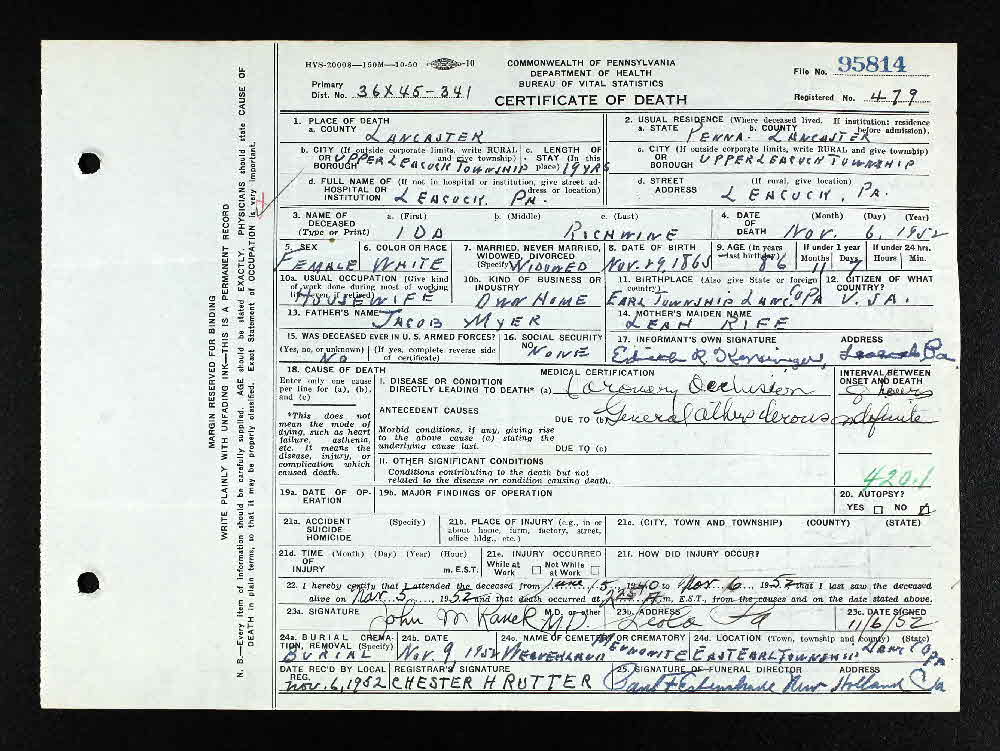 HVS-20008—150M—10-50 10
COMMONWEALTH OF PENNSYLVANIA
DEPARTMENT OF HEALTH
BUREAU OF VITAL STATISTICS
CERTIFICATE OF DEATH
File No. 95814
Primary
Dist. No. 36X45-341
Registered No. 479
1. PLACE OF DEATH
a. COUNTY LANCASTER
b. CITY (If outside corporate limits, write RURAL
OR and give township)
BOROUGH UPPER LEACOCK TOWNSHIP
c. LENGTH OF
STAY (In this
place) 19 YRS
d. FULL NAME OF (If not in hospital or institution, give street ad-
HOSPITAL OR dress or location)
INSTITUTION LEACOCK, PA.
2. USUAL RESIDENCE (Where deceased lived. If institution: residence
before admission).
a. STATE PENNA. b. COUNTY LANCASTER
c. CITY (If outside corporate limits, write RURAL and give township)
OR
BOROUGH UPPER LEACOCK TOWNSHIP
d. STREET (If rural, give location)
ADDRESS LEACOCK, PA.
3. NAME OF a. (First) b. (Middle) c. (Last)
DECEASED
(Type or Print) IDA RICHWINE
4. DATE (Month) (Day) (Year)
OF
DEATH NOV. 6, 1952
5. SEX
FEMALE
6. COLOR OR RACE
WHITE
7. MARRIED, NEVER MARRIED,
WIDOWED, DIVORCED
(Specify) WIDOWED
8. DATE OF BIRTH
NOV. 29 1865
9. AGE (In years
last birthday) 86
If under 1 year
Months Days
11 7
If under 24 hrs.
Hours Min.
10a. USUAL OCCUPATION (Give kind
of work done during most of working
life, even if retired)
HOUSEWIFE
10b. KIND OF BUSINESS OR
INDUSTRY
OWN HOME
11. BIRTHPLACE (Also give State or foreign
country)
EARL TOWNSHIP LANC CO PA
12. CITIZEN OF WHAT
COUNTRY?
U.S.A.
13. FATHER'S NAME
JACOB MYER
14. MOTHER'S MAIDEN NAME
LEAH RIFE
15. WAS DECEASED EVER IN U. S. ARMED FORCES?
(Yes, no, or unknown) (If yes, complete reverse side
of certificate)
NO
16. SOCIAL SECURITY
NO. NONE
17. INFORMANT'S OWN SIGNATURE ADDRESS
Edith R Leacock Pa
18. CAUSE OF DEATH
Enter only one cause
per line for (a), (b),
and (c)
MEDICAL CERTIFICATION
INTERVAL BETWEEN
ONSET AND DEATH
I. DISEASE OR CONDITION
DIRECTLY LEADING TO DEATH* (a) Coronary Occlusion hours
*This does not
mean the mode of
dying, such as heart
failure, asthenia,
etc. It means the
disease, injury, or
complication which
caused death.
ANTECEDENT CAUSES
DUE TO (b) General indefinite
Morbid conditions, if any, giving rise
to the above cause (a) stating the
underlying cause last.
DUE TO (c)
II. OTHER SIGNIFICANT CONDITIONS
Conditions contributing to the death but not
related to the disease or condition causing death.
420.1
19a. DATE OF OP-
ERATION
19b. MAJOR FINDINGS OF OPERATION
20. AUTOPSY?
YES NO
21a. ACCIDENT (Specify)
SUICIDE
HOMICIDE
21b. PLACE OF INJURY (e.g., in or
about home, farm, factory, street,
office bldg., etc.)
21c. (CITY, TOWN AND TOWNSHIP) (COUNTY) (STATE)
21d. TIME (Month) (Day) (Year) (Hour)
OF
INJURY m. E.S.T.
21e. INJURY OCCURRED
While at Work Not While at Work
21f. HOW DID INJURY OCCUR?
22. I hereby certify that I attended the deceased from June 15, 1940 to Nov. 6, 1952 that I last saw the deceased
alive on Nov. 5, 1952 and that death occurred at m. E.S.T., from the causes and on the date stated above.
23a. SIGNATURE M.D. or other
John M M.D.
23b. ADDRESS
Leola Pa
23c. DATE SIGNED
11/6/52
24a. BURIAL, CREMA-
TION, REMOVAL (Specify)
BURIAL
24b. DATE
NOV. 9 1952
24c. NAME OF CEMETERY OR CREMATORY
WEAVERLAND MENNONITE
24d. LOCATION (Town, township and county) (State)
EAST EARL TOWNSHIP LANC CO PA.
DATE REC'D BY LOCAL
REG.
Nov. 6, 1952
REGISTRAR'S SIGNATURE
CHESTER H RUTTER
25. SIGNATURE OF FUNERAL DIRECTOR ADDRESS
New Holland Pa
MARGIN RESERVED FOR BINDING
WRITE PLAINLY WITH UNFADING INK—THIS IS A PERMANENT RECORD
N. B.—Every item of information should be carefully supplied. AGE should be stated EXACTLY. PHYSICIANS should state CAUSE OF
DEATH in plain terms, so that it may be properly classified. Exact Statement of OCCUPATION is very important.